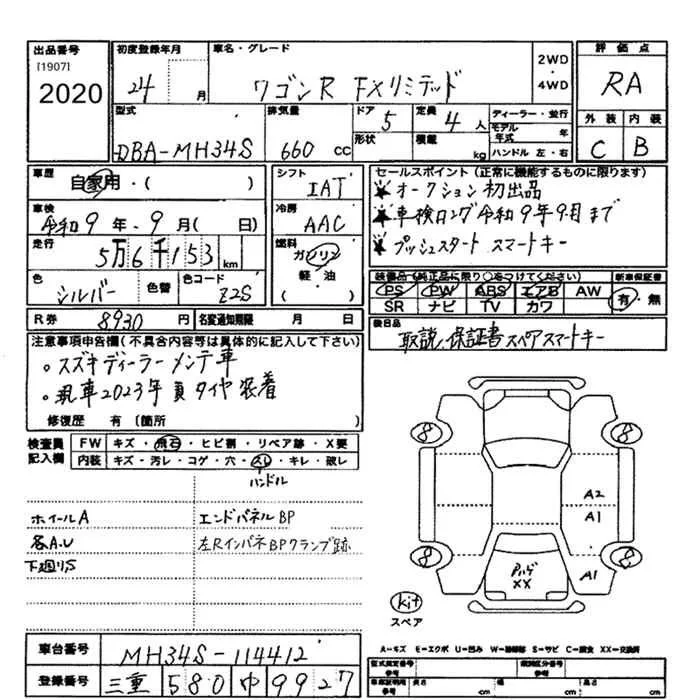 出品番号
[1907]
2020
初度登録年月
24 月
車名・グレード
ワゴンR FXリミテッド
2WD
・
4WD
評価点
RA
外装 内装
C B
型式
DBA-MH34S
排気量
660 cc
ドア
5
形状
定員
4人
積載
kg
ディーラー・並行
モデル年式 年
ハンドル 左・右
車歴
自家用・( )
車検
令和9年・9月( 日)
走行
5万6千153km
色
シルバー
色替
色コード
Z2S
シフト
IAT
冷房
AAC
燃料
ガソリン
軽・油
( )
セールスポイント(正常に機能するものに限ります)
★オークション初出品
★車検ロング令和9年9月まで
★プッシュスタート スマートキー
装備品(純正品に限り○をつけてください)
PS PW ABS エアB AW
SR ナビ TV カワ
新車保証書
有・無
後日品
取説、保証書スペアスマートキー
R券 8930円
名変通知期限 月 日
注意事項申告欄(不具合内容等は具体的に記入して下さい)
。スズキディーラーメンテ車
。現車2023年夏タイヤ装着
修復歴 有(箇所 )
検査員
記入欄
FW キズ・飛石・ヒビ割・リペア跡・X要
内装 キズ・汚レ・コゲ・穴・スレ・キレ・破レ
ハンドル
ホイールA
各A.U
下廻りS
エンドパネルBP
左RインパネBPクランプ跡
8
8
8
8
A2
A1
A1
XX
kit
スペア
A-キズ E-エクボ U-凹み W-補修跡 S-サビ C-腐食 XX-交換済
車台番号
MH34S-114412
登録番号
三重 580 中 9927
型式指定番号
参考
類別区分番号
参考
車庫証明
参考
長さ cm
幅 cm
高さ cm